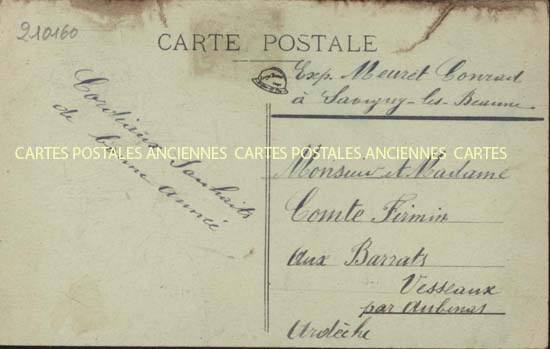 210160
CARTE POSTALE
Exp. Meuret Conrad
à Savigny-les-Beaune
Cordiaux Souhaits
de bonne année
CARTES POSTALES ANCIENNES CARTES POSTALES ANCIENNES CARTES
Monsieur et Madame
Comte Firmin
aux Barrats
Vesseaux
par Aubenas
Ardèche